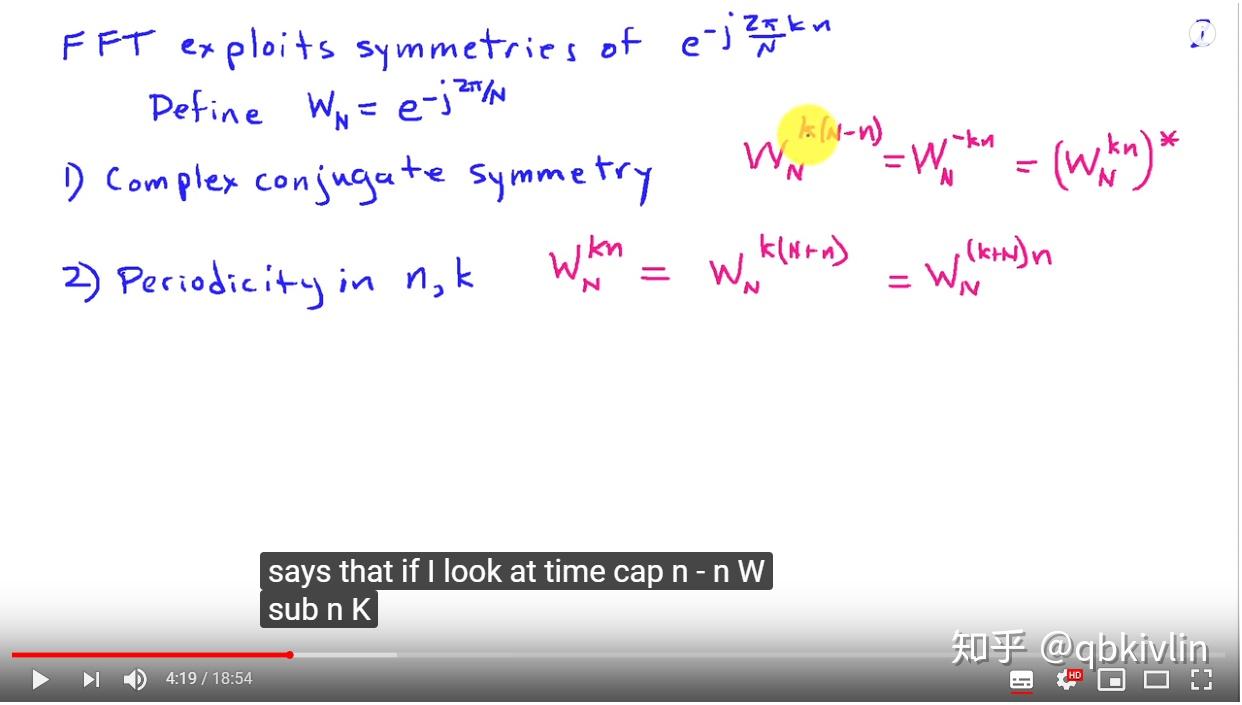 FFT exploits symmetries of e^{-j\frac{2π}{N}kn}
Define W_N = e^{-j2π/N}
1) Complex conjugate symmetry W_N^{k(N-n)} = W_N^{-kn} = (W_N^{kn})^*
2) Periodicity in n,k W_N^{kn} = W_N^{k(N+n)} = W_N^{(k+N)n}
says that if I look at time cap n - n W
sub n K
知乎 @qbkivlin
4:19 / 18:54
HD